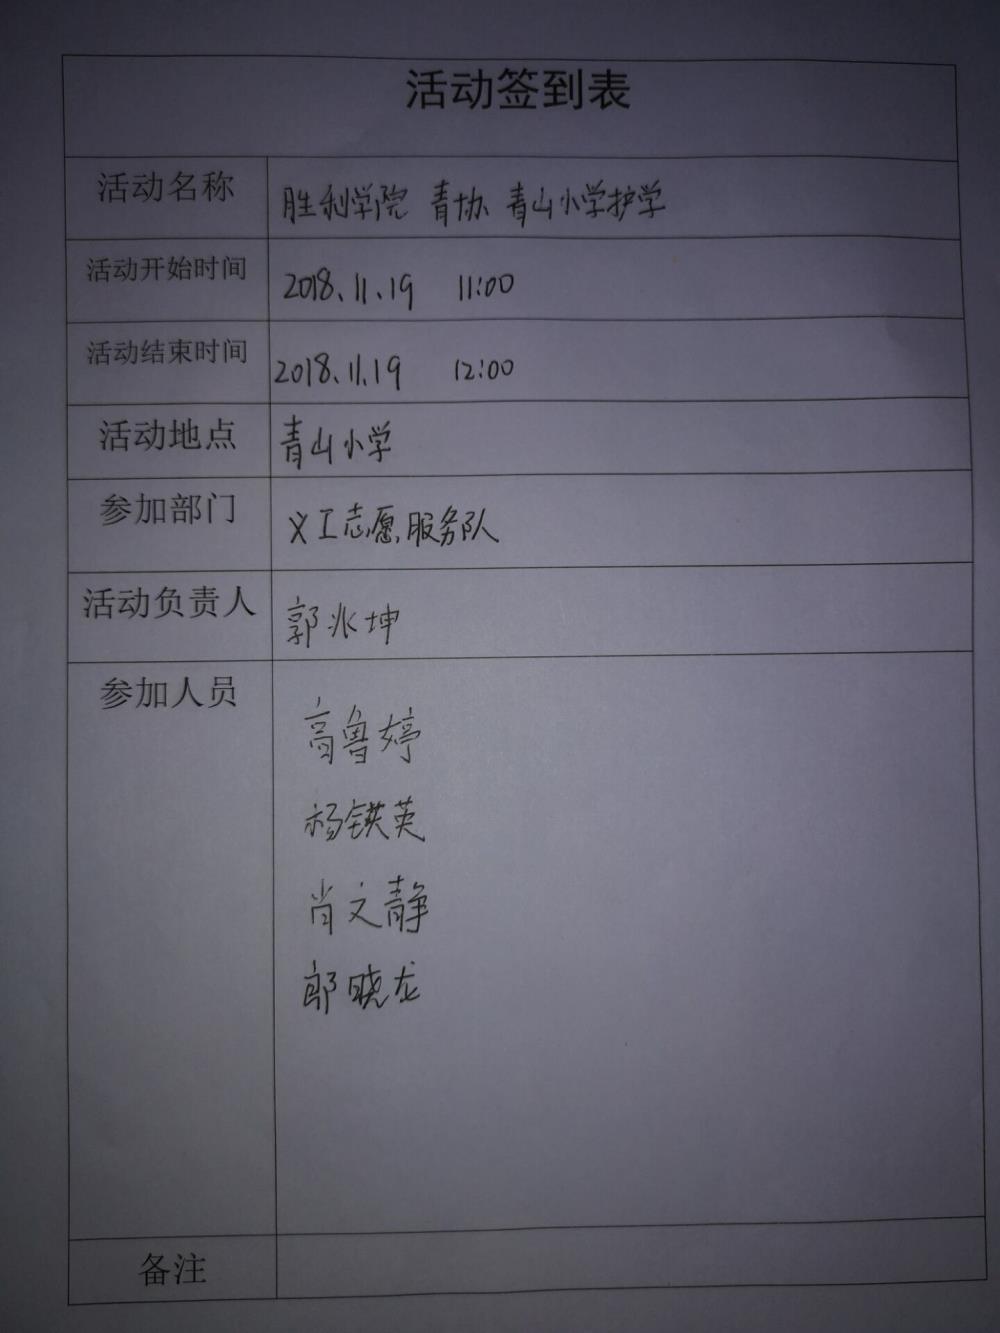 活动签到表
活动名称 胜利学院 青协 青山小学护学
活动开始时间 2018.11.19 11:00
活动结束时间 2018.11.19 12:00
活动地点 青山小学
参加部门 义工志愿服务队
活动负责人 郭兆坤
参加人员
高鲁婷
杨锳英
肖文静
郎晓龙
备注